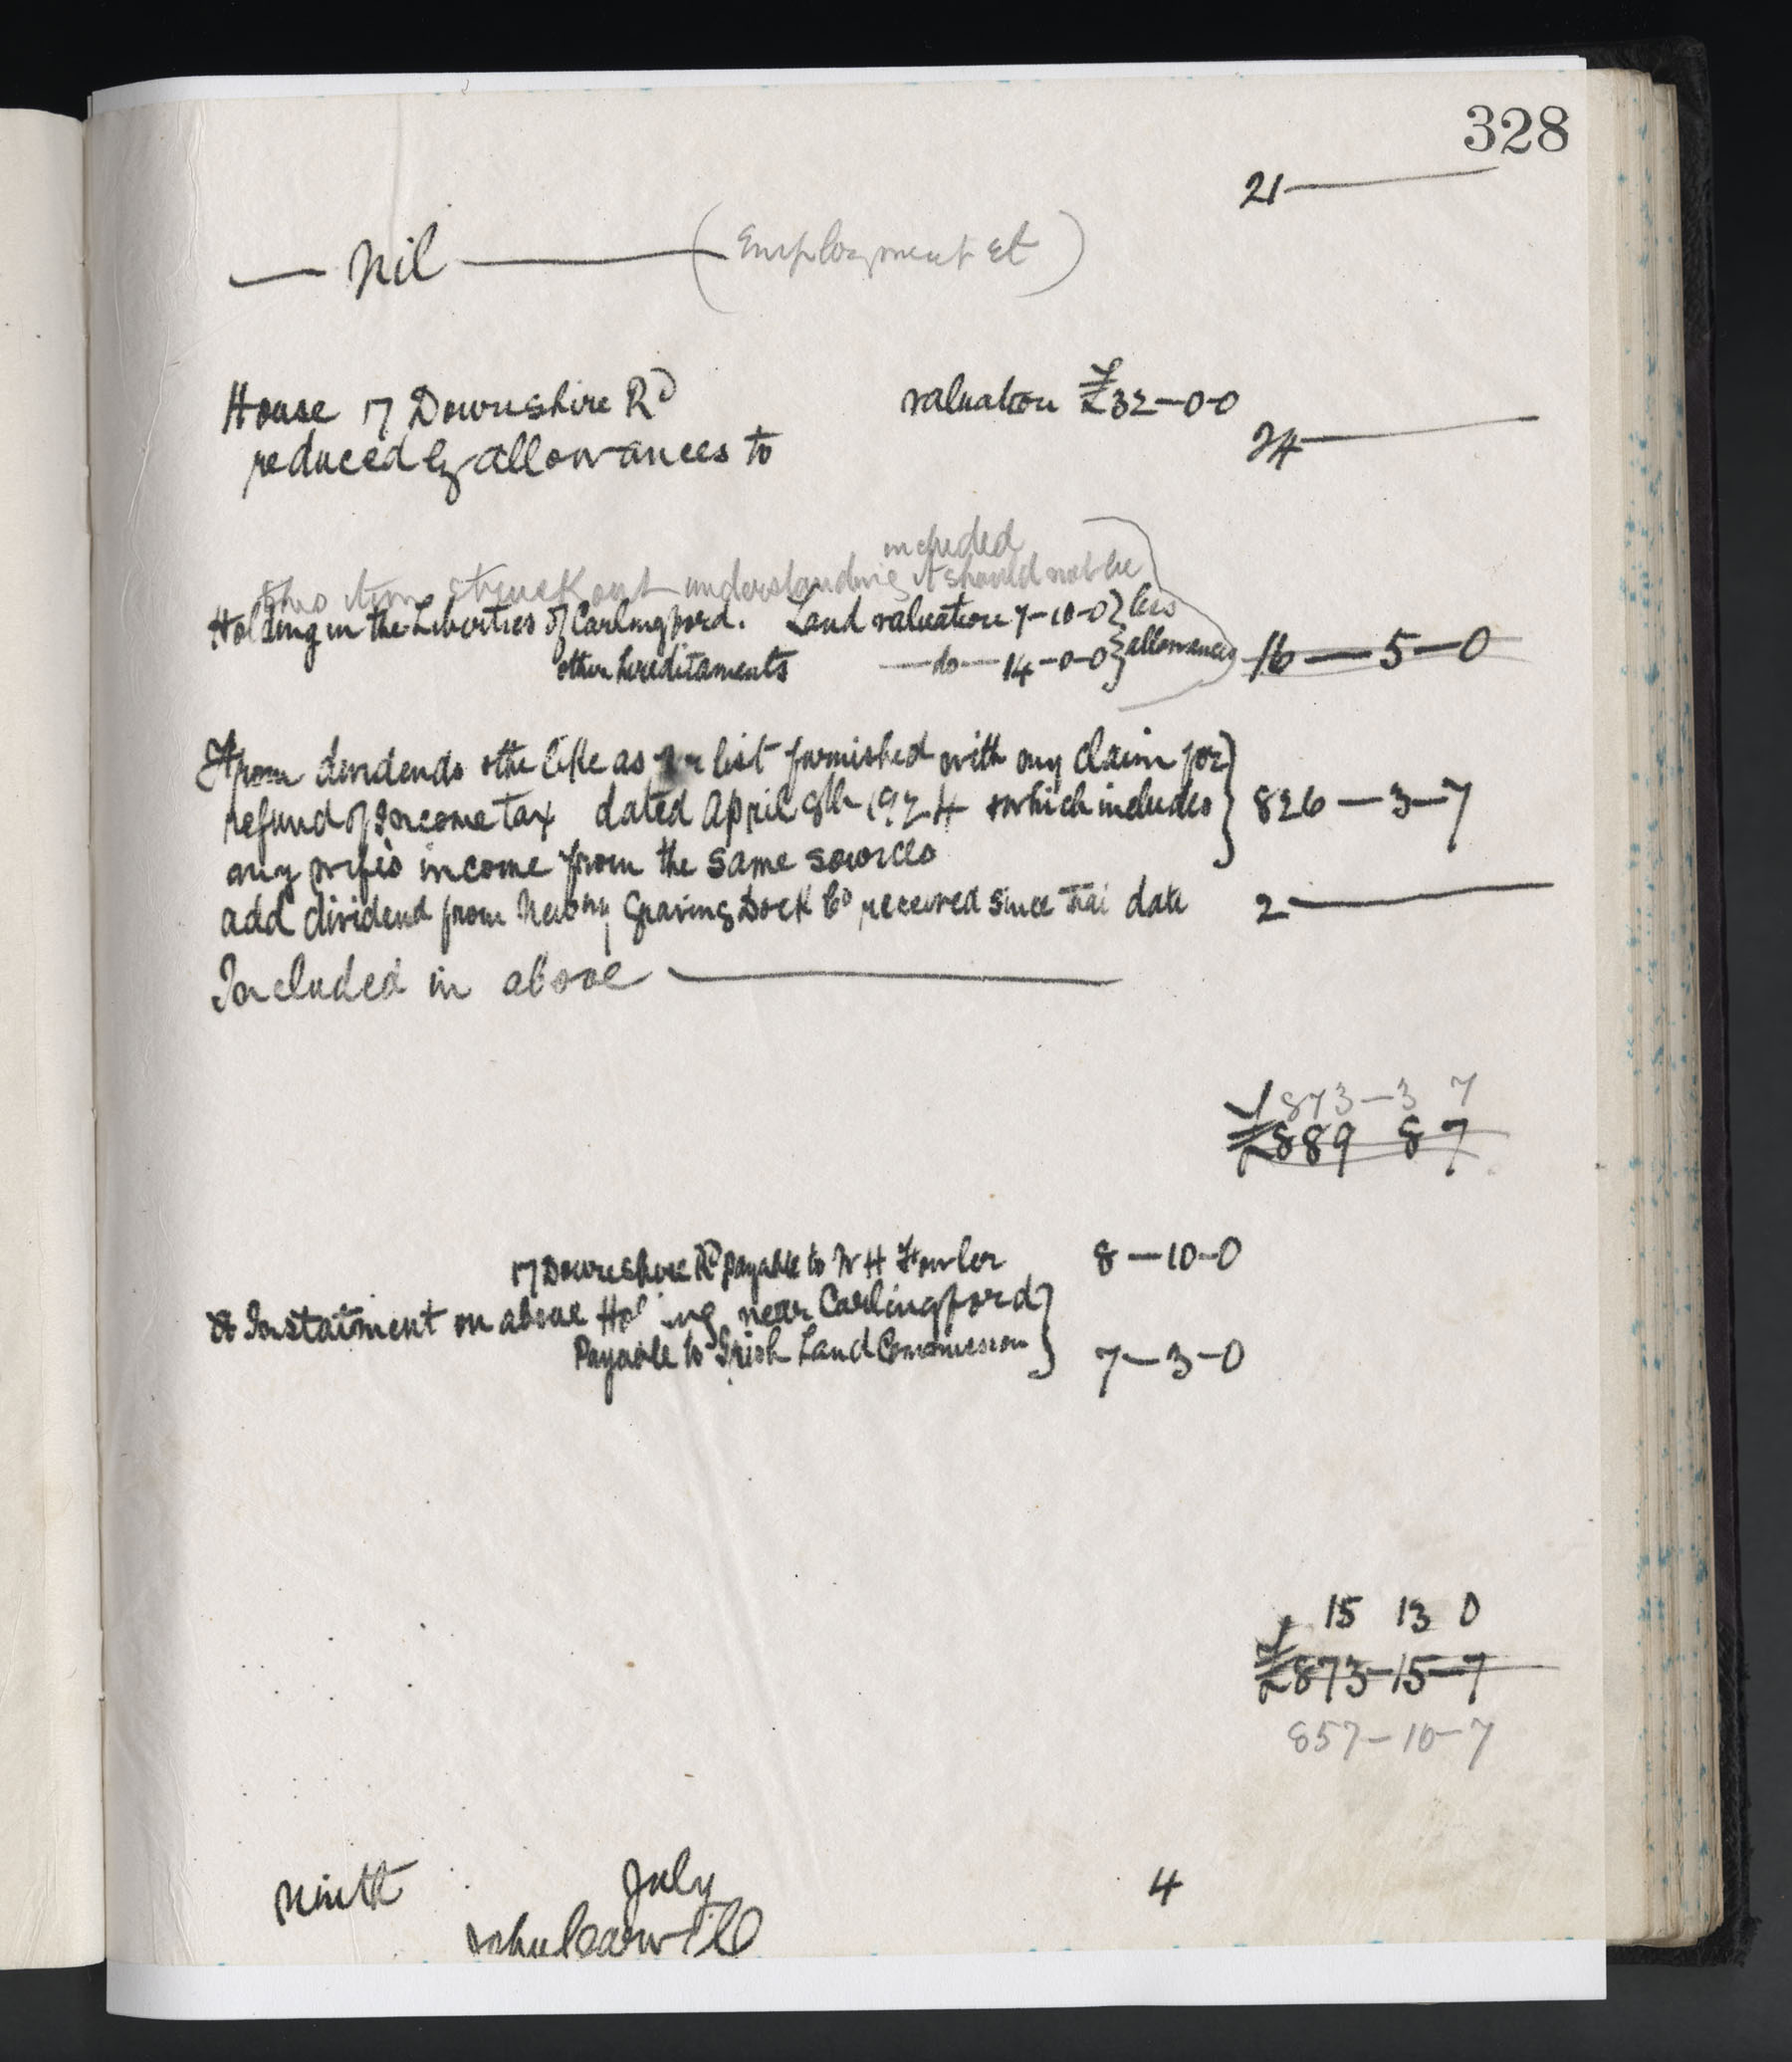 328
21 ———
— Nil ——— (Employment et)
House 17 Downshire Rd valuation £32-0-0
reduced by allowances to 24 ———
included
this item struck out understanding it should not be
Holding in the Liberties of Carlingford. Land valuation 7-10-0 } less
other hereditaments — do — 14-0-0 } allowances 16 — 5 — 0
From dividends & the like as list furnished with my claim for
refund of Income tax dated April 8th 1924 & which includes } 826 — 3 — 7
my wife's income from the same sources
add dividend from Newry Graving Dock Co received since that date 2 ———
Included in above ———
873 — 3 7
£889 8 7
17 Downshire Rd payable to W H Fowler 8 — 10 - 0
& Instalment on above Holding near Carlingford }
Payable to Irish Land Commission } 7 — 3 — 0
15 13 0
£873 - 15 - 7
857 - 10 - 7
Ninth July 4